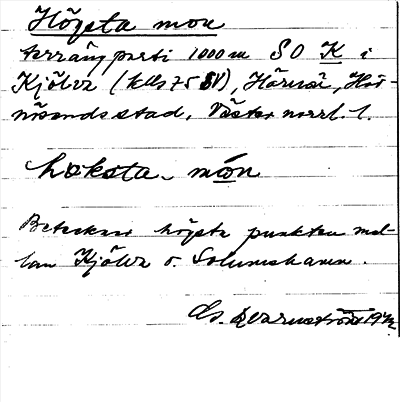 Högsta mon
terrängparti 1000 m SO K i
Kjölva (kbl 75 SV), Härnön, Här-
nösands stad, Västernorrl. l.
høksta-món
Betecknar högsta punkten mel-
lan Kjölva o. Solumshamn.
Qvarnström 19